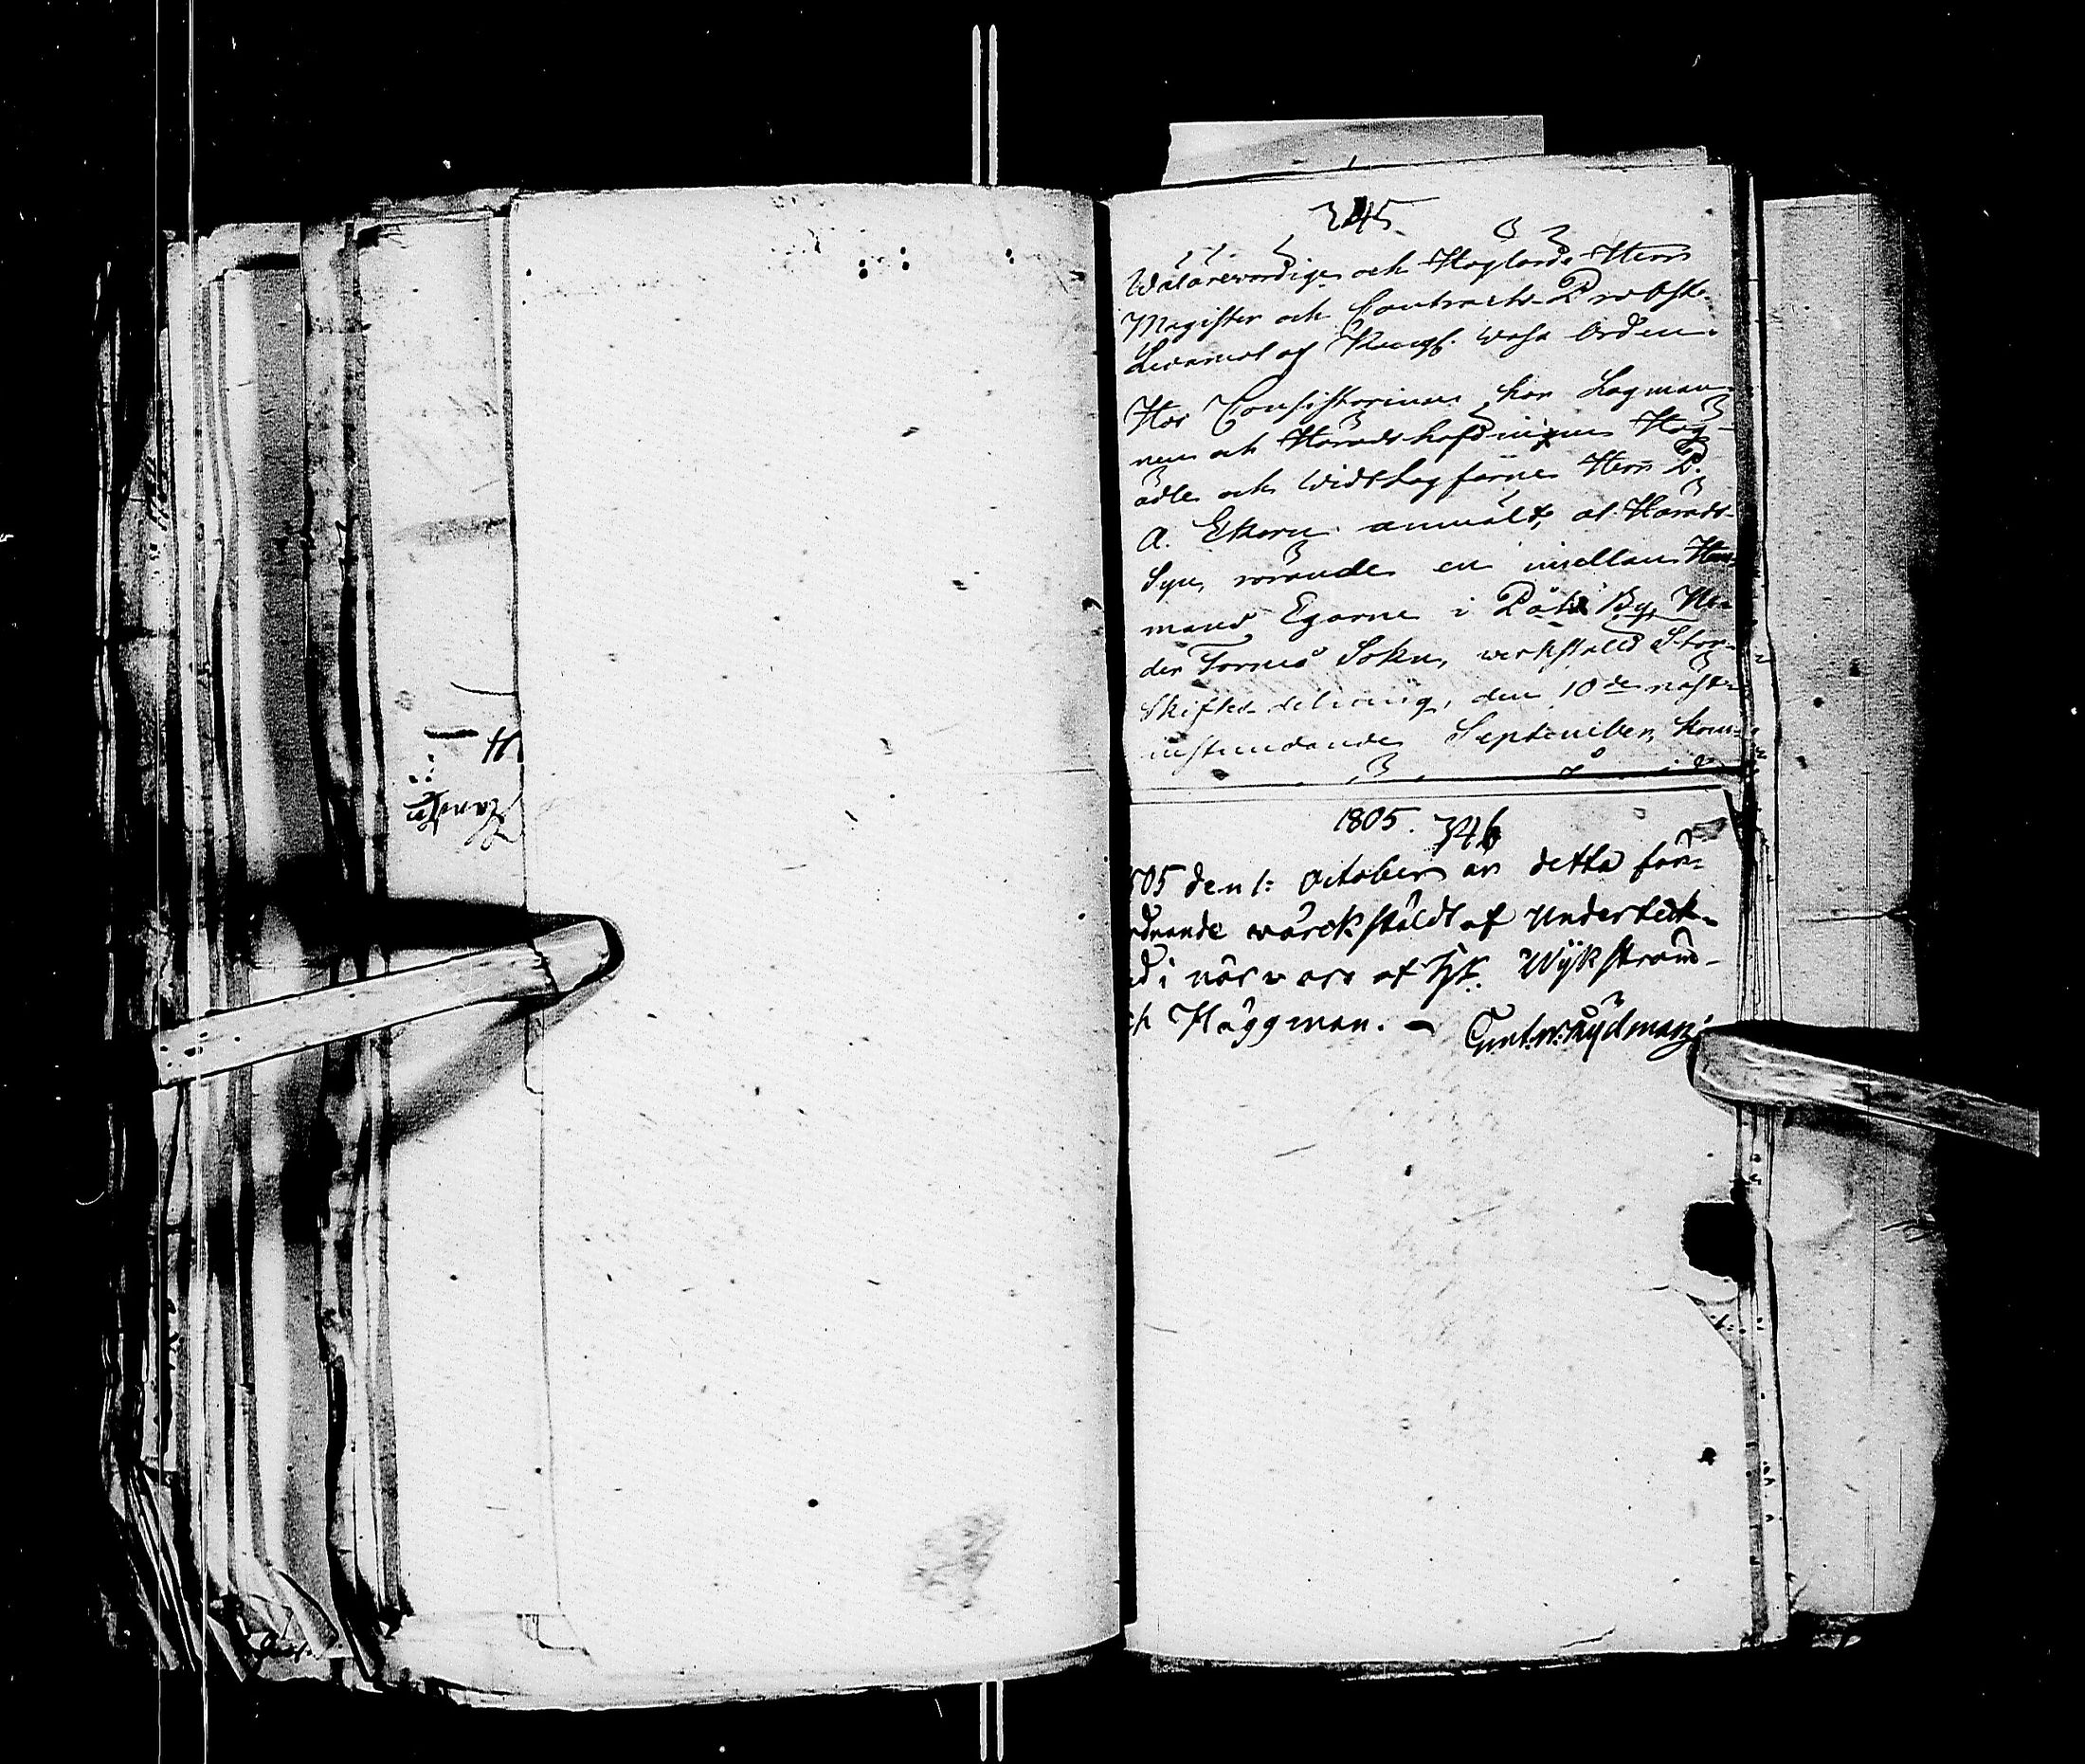 345.
Wälärewördige och Höglärde Herr
Magister och Contracts-Probst.
Ledamot af Kongl. Wasa Orden.
Hos Consistorium har Lagman-
nen och Häradshöfdingen Hög-
ädle och Widtlagfarne Herr P.
A. Ekorn anmält, at Härads-
Syn, rörande en imellan Hem-
mans Egarne i Päkä By, Ne-
der Torneå Sokn, werkstäld Stor-
skiftes delning, den 10de näst-
instundande September, kom-
1805. 346
805 den 1: October är detta för-
ordnande wärckstäldt af Underteck-
nad i närvaro af Wijkström-
ch Häggman. –